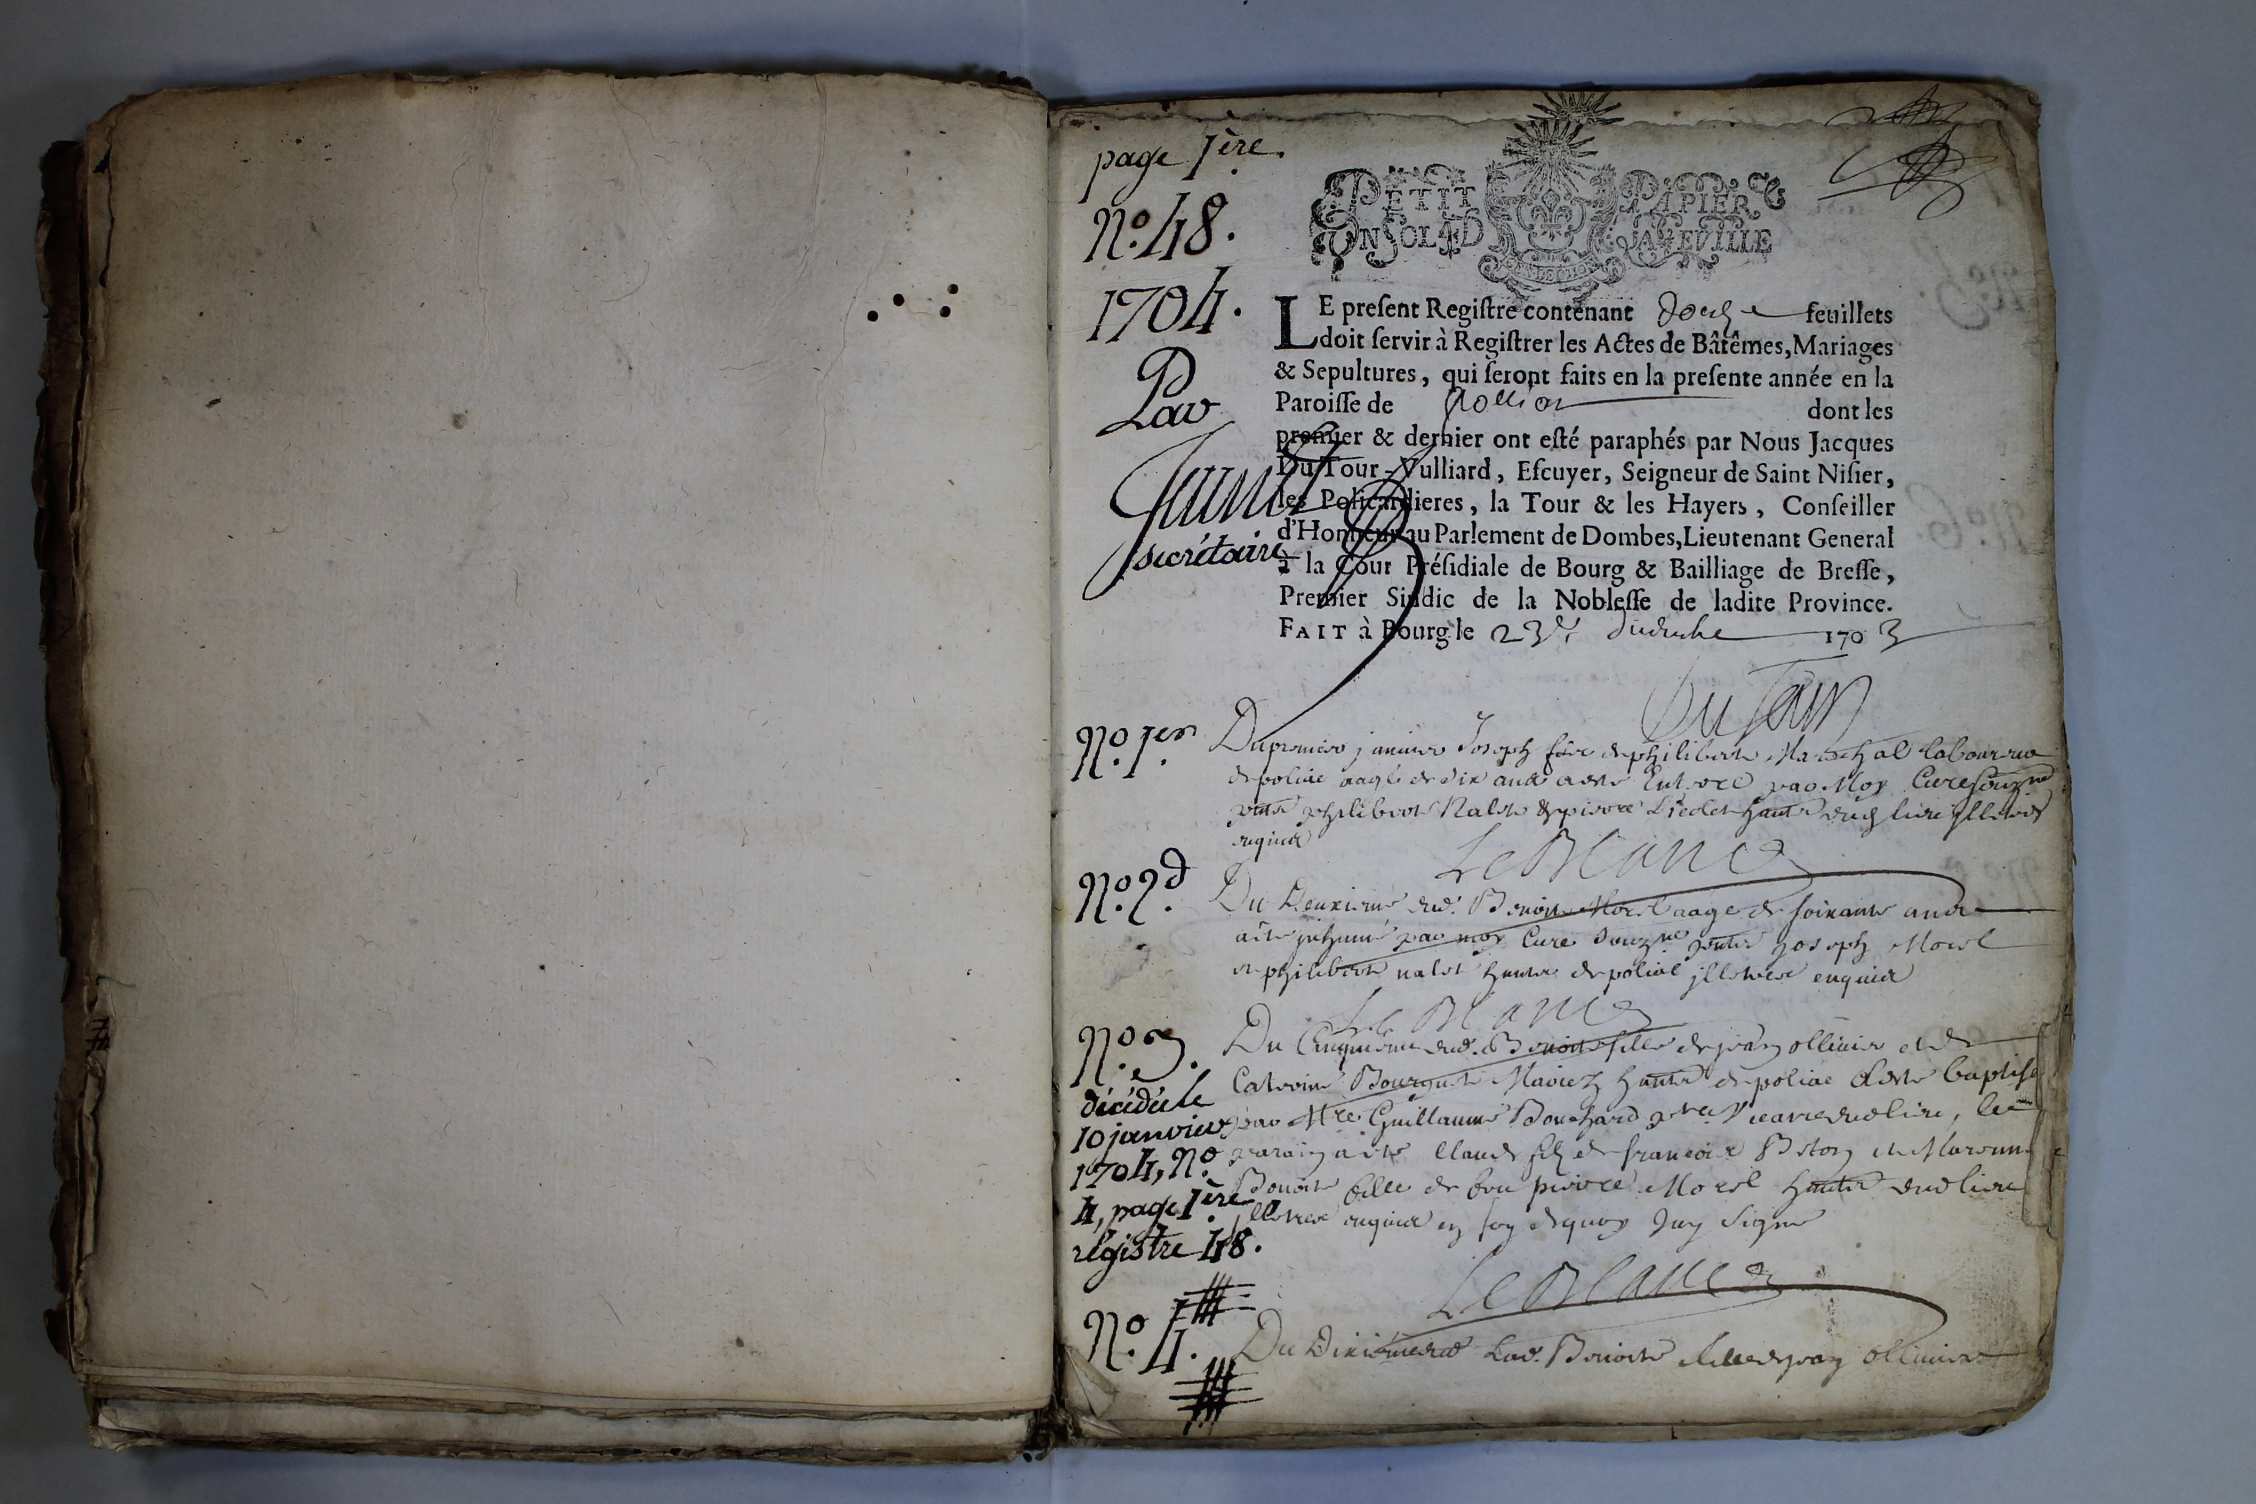 page 1ère.
N.º 48.
1704.
Par
Janod
secrétaire
PETIT PAPIER
UN SOL 4 D LA FEUILLE
LE present Registre contenant douze feuillets
doit servir à Registrer les Actes de Bâtêmes, Mariages
& Sepultures, qui seront faits en la presente année en la
Paroisse de Pollia dont les
premier & dernier ont esté paraphés par Nous Jacques
Du Tour-Vulliard, Escuyer, Seigneur de Saint Nisier,
les Policardieres, la Tour & les Hayers, Conseiller
d'Honneur au Parlement de Dombes, Lieutenant General
à la Cour Présidiale de Bourg & Bailliage de Bresse,
Premier Sindic de la Noblesse de ladite Province.
FAIT à Bourg le 23e 1703
Du Tour
N.º 1.er
Du premier janvier Joseph de philiberte Mareschal laboureur
de poliac aagé de dix ans a este Enterré par Moy Cure soubz.ne
philibert Nalet & pierre hants dud lieu jlleterés
enquis
LeBlanc
N.º 2.d
Du Deuxieme dud. Benoist Morel aagé de soixante ans
a été inhumé par moy Cure soubz.ne joseph Morel
et philiberte nalet hants de poliac jlleteres enquis
LeBlanc
N.º 3.
décédée le
10 janvier
1704, N.º
4, page 1ère
régistre 48.
Du Cinquieme dud. Benoite fille de jean ollivier et de
Caterine Bourguet Mariez hants de poliac a este baptisé
par Mre Guillaume Bouchard vicaire dud lieu, le
parain a été Claude filz de francois Beton et Maraine
Benoite fille de feu pierre Morel hants dud lieu
jlleteres enquis en foy de quoy Jay Signé
LeBlanc
N.º 4.
Du Dixieme dud Lad. Benoite fille de jean ollivier